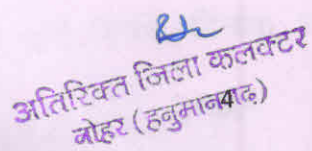 अतिरिक्त जिला कलक्टर
नोहर (हनुमानगढ़)
4